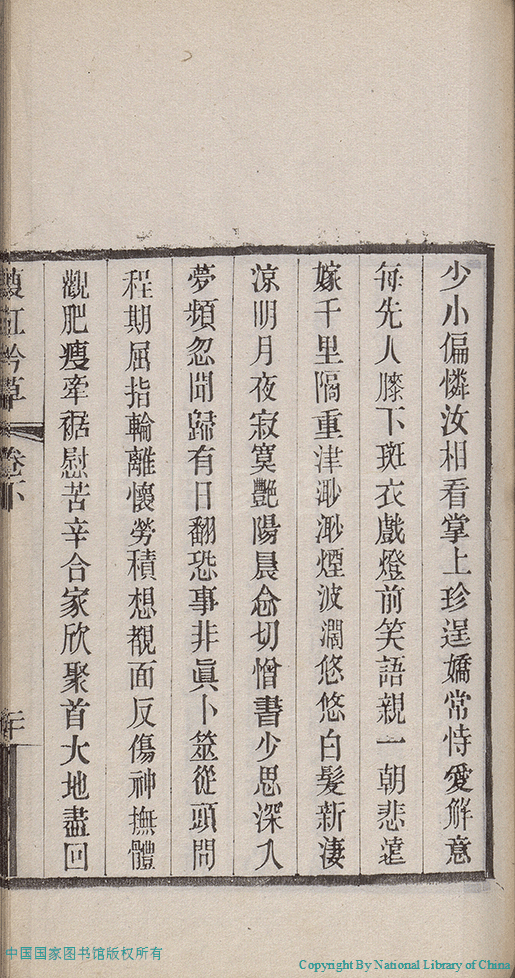 少小偏憐汝相看掌上珍逞嬌常恃愛解意
每先人膝下斑衣戲燈前笑語親一朝悲遠
嫁千里隔重津渺渺煙波濶悠悠白髮新淒
凉明月夜寂寞艷陽晨念切憎書少思深入
夢頻忽聞歸有日翻恐事非眞卜筮從頭問
程期屈指輪離懷勞積想覩面反傷神撫體
觀肥瘦牽裾慰苦辛合家欣聚首大地盡回
吟草 卷下
中国国家图书馆版权所有
Copyright By National Library of China